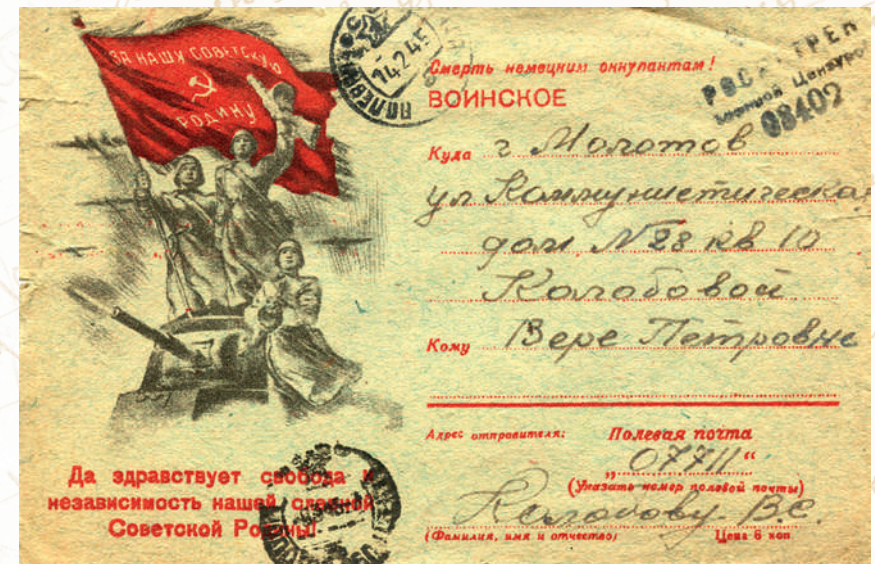 ЗА НАШУ СОВЕТСКУЮ
РОДИНУ
14 2 45
Смерть немецким оккупантам!
ВОИНСКОЕ
ПРОСМОТРЕНО
Военной Цензурой
Куда г Молотов
ул Коммунистическая
дом № 28 кв 10
Колобовой
Кому Вере Петровне
Адрес отправителя: Полевая почта
„07711“
(Указать номер полевой почты)
Колобову В.С.
(Фамилия, имя и отчество) Цена 6 коп
Да здравствует свобода и
независимость нашей
Советской Родины!